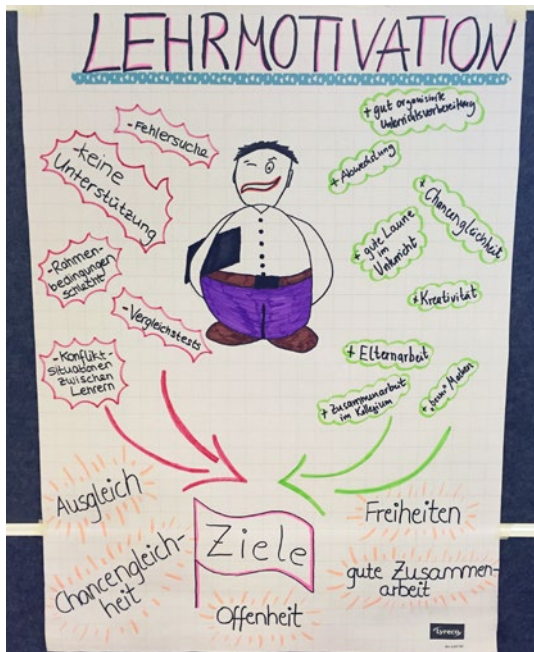 LEHRMOTIVATION
- Fehlersuche
- keine
Unterstützung
- Rahmen-
bedingungen
schlecht
- Vergleichstests
- Konflikt-
situationen
zwischen
Lehrern
+ gut organisierte
Unterrichtsvorbereitung
+ Abwechslung
+ Chancengleichheit
+ gute Laune
im
Unterricht
+ Kreativität
+ Elternarbeit
+ Zusammenarbeit
im Kollegium
Machen
Ausgleich
Chancengleich-
heit
Ziele
Offenheit
Freiheiten
gute Zusammen-
arbeit